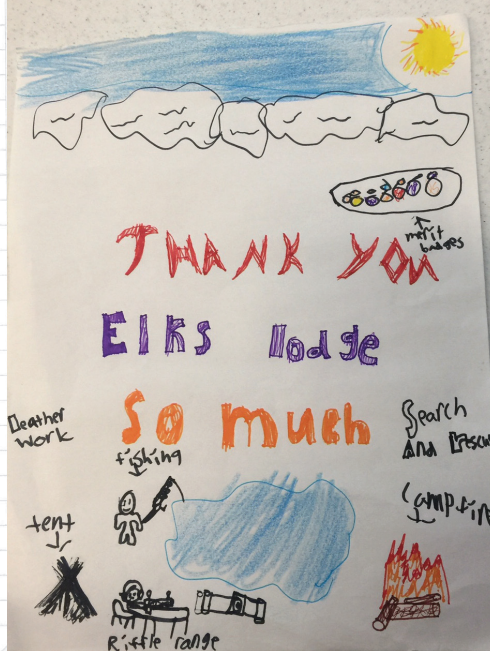 merit
badges
THANK YOU
Elks lodge
So much
Leather
work
fishing
Search
And Rescu
tent
Campfir
Riffle range